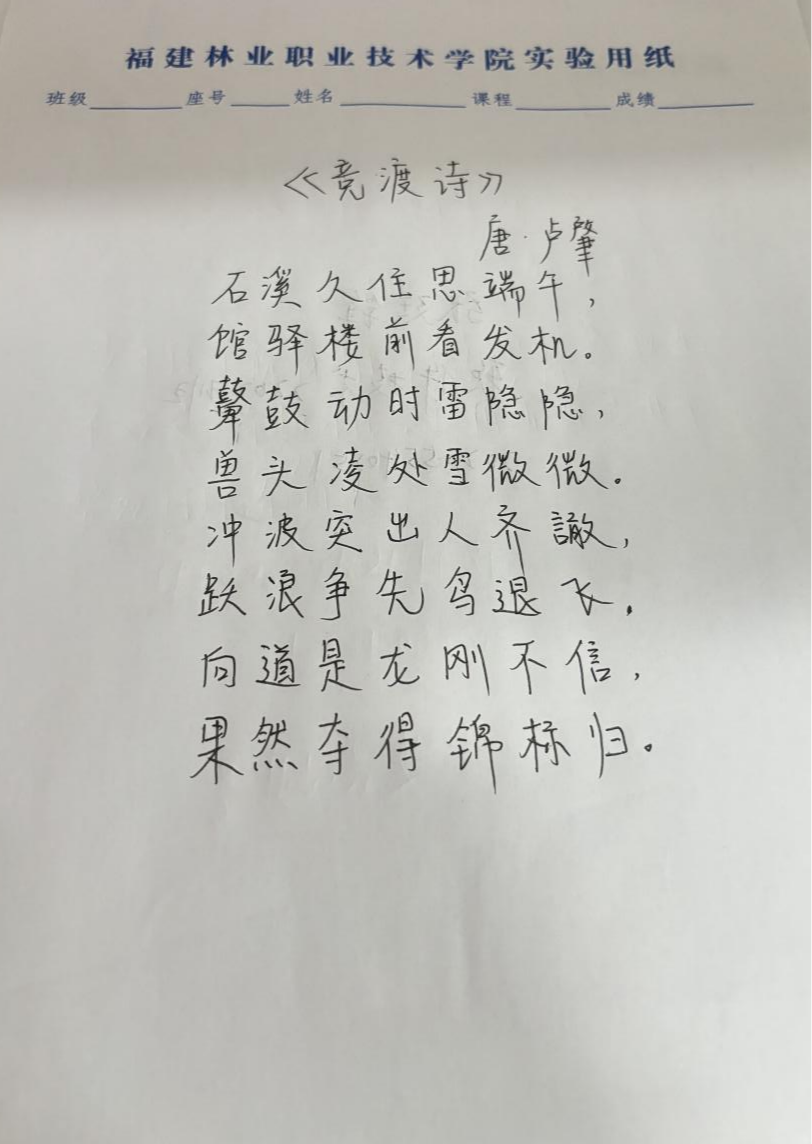 福建林业职业技术学院实验用纸
班级 座号 姓名 课程 成绩
《竞渡诗》
唐·卢肇
石溪久住思端午，
馆驿楼前看发机。
鼙鼓动时雷隐隐，
兽头凌处雪微微。
冲波突出人齐譀，
跃浪争先鸟退飞。
向道是龙刚不信，
果然夺得锦标归。